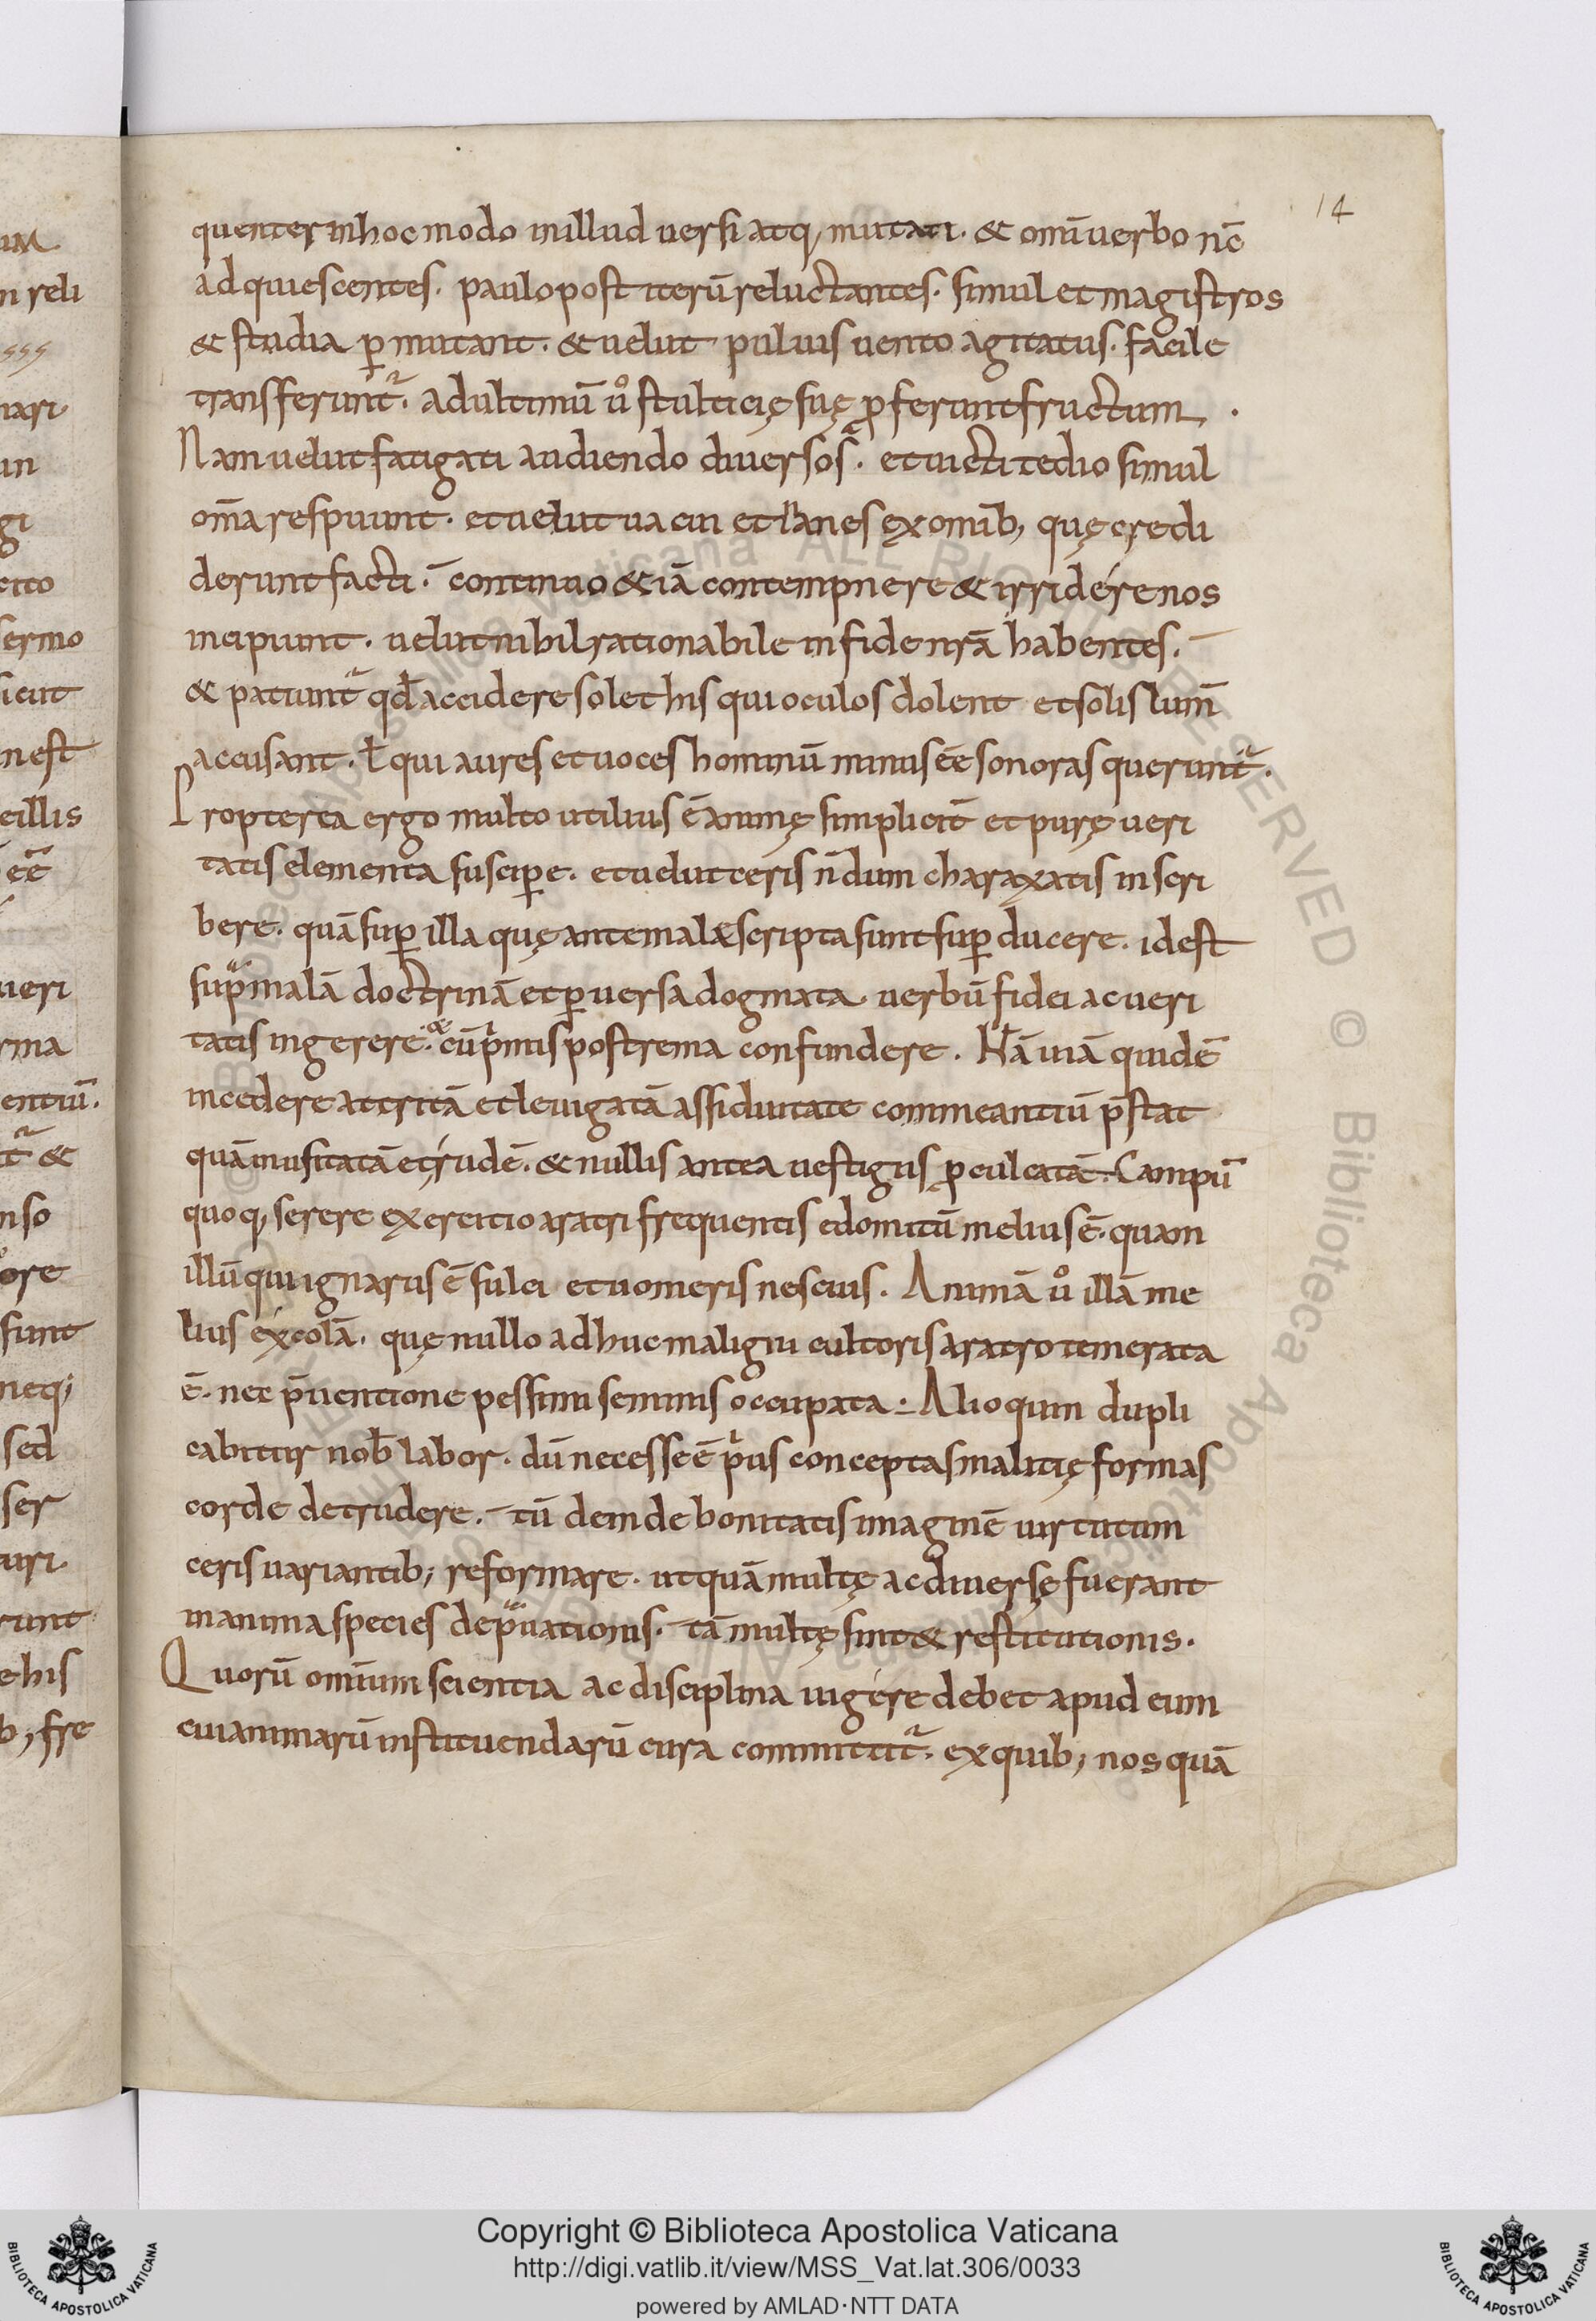 14
quenter inhoc modo inillud uersi atq; mutati. & omi uerbo nc̄
adquiescentes. paulopost iterū reluctantes. simul et magistros
& studia ꝑmutant. & uelut puluis uento agitatus. facile
transferunt᷑. adultimū u° stulticię suę ꝓferunt fructum.
Nam uelut fatigati audiendo diuersos. et uicti tedio simul
om̄a respuunt. et uelut uacui et inanes ex omīb; quę credi
derunt facti. continuo & iā contempnere & irridére nos
incipiunt. uelut nihil rationabile in fide nr̄ā habentes.
& patiunt᷑ qđ accidere solet his qui oculos dolent et solis lum̄
accusant. ł qui aures et uoces hominū minus eē sonoras querunt᷑.
Propterea ergo multo utilius ē animę simplicit̄ et purę ueri
tatis elementa susciꝑe. et uelut ceris n̄dum charaxatis inscri
bere. quā suꝑ illa quę ante malæ scripta sunt suꝑducere. idest
sup malā doctrinā et ꝑuersa dogmata. uerbū fidei ac ueri
tatis ingerere. & cū pͥmis postrema confundere. Nā uiā quidē
incedere atritā et leuigatā assiduitate commeantiū p̄stat
quā inusitatā et rudē. & nullis antea uestigiis ꝓculcatā. Campū
quoq; serere exercitio aratri frequentis edomitū melius ē. quam
illū qui ignarus ē sulci et uomeris nescius. Animā u° illā me
lius excolā. quę nullo adhuc maligni cultoris aratro temerata
ē. nec p̄uentione pessimi seminis occupata. Alioquin dupli
cabitur nob̄ labor. dū necesse ē pͥus conceptas malitię formas
corde detrudere. tū deinde bonitatis imaginē uirtutum
ceris uariantib; reformare. ut quā multę ac diuersę fuerant
in anima species depͣuationis. tā multę sint & restitutionis.
Quorū omīum scientia ac disciplina uigére debet apud eum
cui animarū instituendarū cura committit᷑. ex quib; nos quā
ALL RIGHTS RESERVED © Biblioteca Apostolica Vaticana
Copyright © Biblioteca Apostolica Vaticana
http://digi.vatlib.it/view/MSS_Vat.lat.306/0033
powered by AMLAD·NTT DATA
BIBLIOTECA APOSTOLICA VATICANA
BIBLIOTECA APOSTOLICA VATICANA